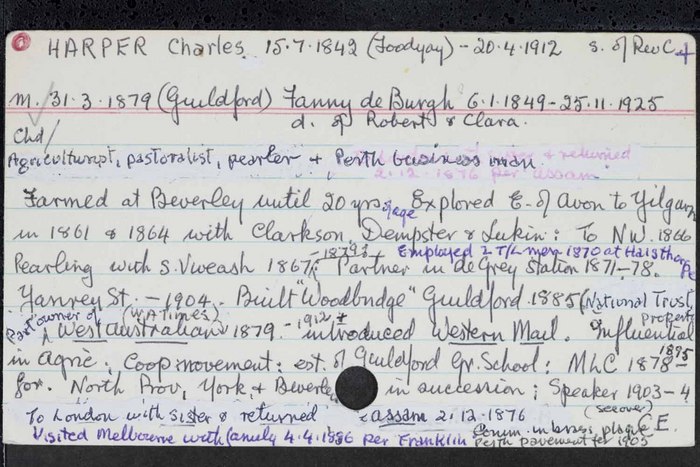 HARPER Charles 15.7.1842 (Toodyay) - 20.4.1912 s. of Rev C +
m. 31.3.1879 (Guildford) Fanny de Burgh 6.1.1849-25.11.1925
d. of Robert & Clara.
Chd/
Agriculturist, pastoralist, pearler + Perth business man.
& returned
2.12.1876 per assam
Farmed at Beverley until 20 yrs of age Explored E. of Avon to Yilgarn
in 1861 & 1864 with Clarkson, Dempster & Lukin: To N.W. 1866
Pearling with S. Viveash 1867; -1879 ; + Employed 2 T/L men 1870 at Haisthorpe
Partner in de Grey Station 1871-78.
Yanrey St. - 1904. Built "Woodbridge" Guildford 1885 (National Trust
property
Part owner of (W.A Times)
West Australian 1879. - 1912 + introduced Western Mail. Influential
in agric. Coop movement: est. of Guildford Gr. School: MLC 1878-
1895
for North Prov, York & Beverley in succession; Speaker 1903-4
(see over)
To London with sister & returned assam 2.12.1876
Comm. in brass plaque C.E.
Visited Melbourne with family 4.4.1886 per Franklin Perth pavement for 1905